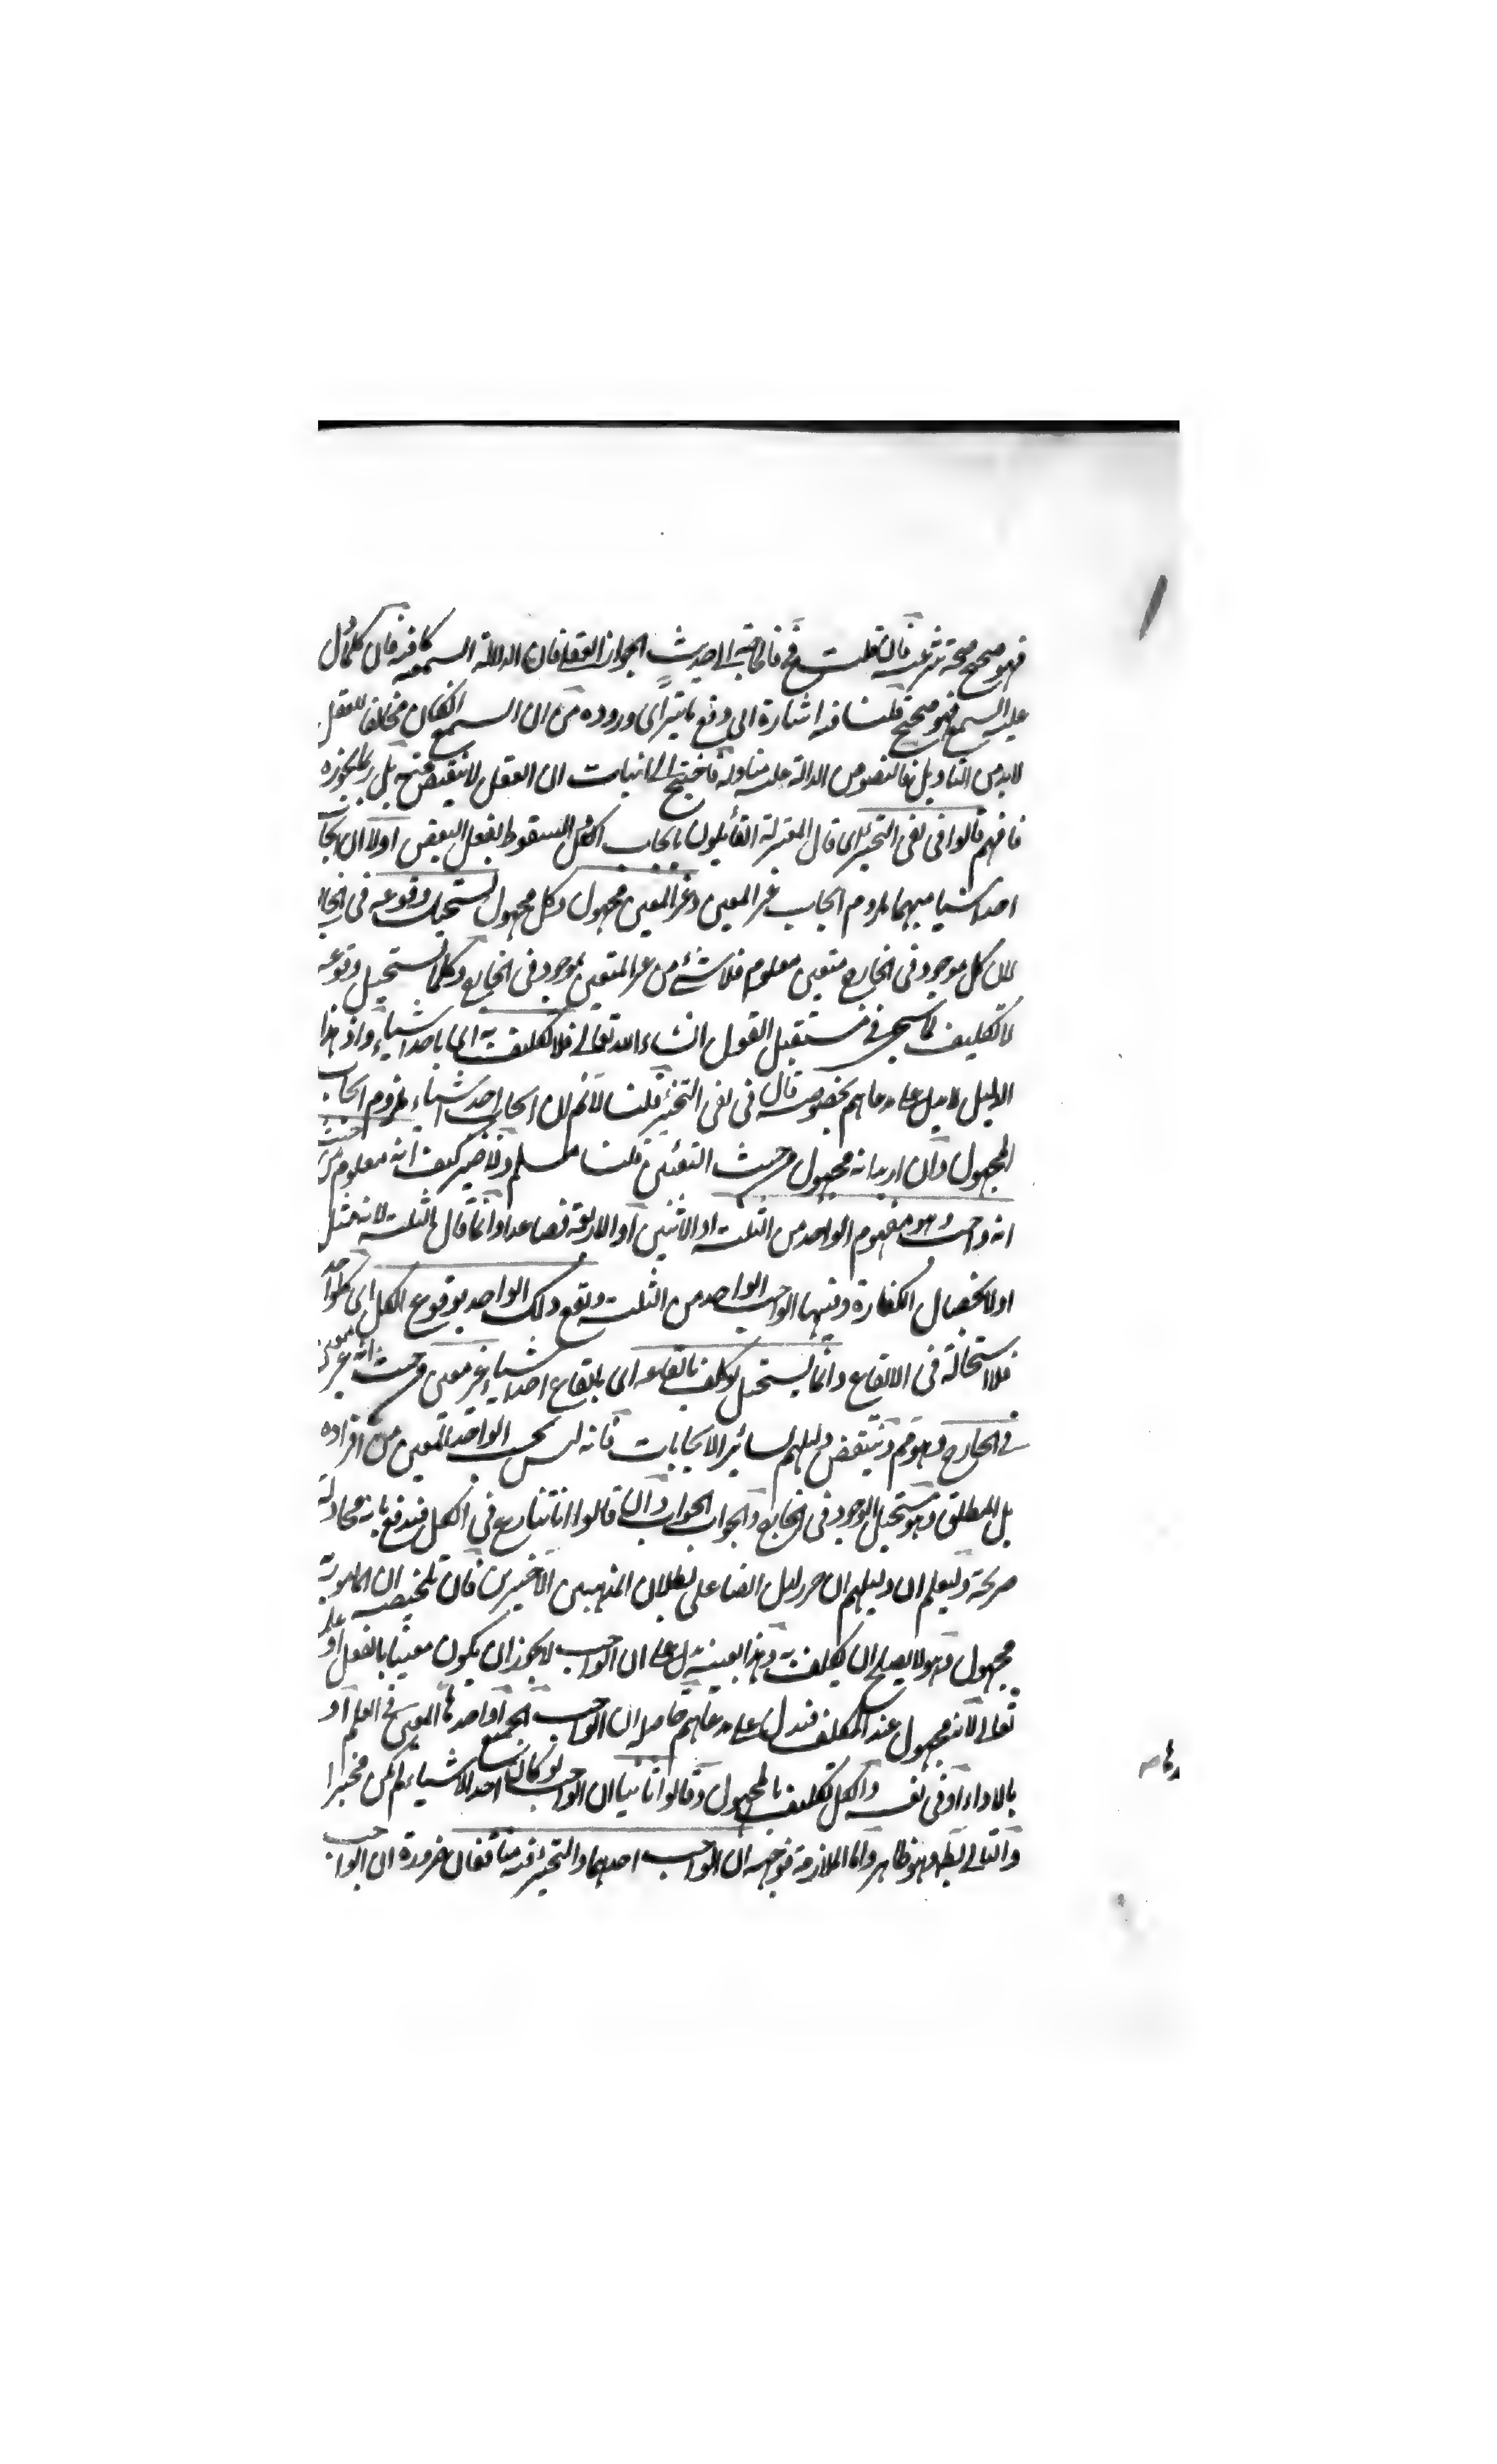 فهو صحيح صحة شرعية فان قلت فح فما الحاجة الى حديث الجواز العقلى فان الدلالة السمعية كافية فان كلما دل
عليه السمع فهو صحيح قلنا فيه اشارة الى دفع ما يترأى وروده من ان السمع اذا كان مخالفا للعقل
لا بد من التأويل فالنصوص الدالة عليه متأولة فاحتيج الى اثبات ان العقل لا يقبض عنه بل يجوزه
فافهم قالوا فى نفى التخيير اى قال المعتزلة القائلون بايجاب الكل السقوط بفعل البعض اولا ان ايجاب
احد اشياء مبهما ملزوم ايجاب غير المعين وغير المعين مجهول وكل مجهول يستحيل وقوعه فى الخارج
لان كل موجود فى الخارج متعين معلوم فلا شئ من غير المتعين بموجود فى الخارج وكلما يستحيل وقوعه
لا تكليف به لما سيجئ فى مستقبل القول انشاء الله تعالى فلا تكليف اى باحد اشياء واذ هذا
الدليل لا يدل على مدعاهم بخصوصه قال فى نفى التخيير قلنا لا نم لان ايجاب احد اشياء ملزوم ايجاب
المجهول وان اريد انه مجهول من حيث التعين قلنا مسلم ولا ضير كيف انه معلوم من حيث
انه واجب وهو مفهوم الواحد من الثلثة او الاثنين او الاربعة فصاعدا وانما قال الثلثة لانه مثل
اولا بخصال الكفارة وفيها الواجب الواحد من الثلثة ويقع ذلك الواحد بوقوع الكل اى كل واحد
فلا استحالة فى الايقاع وانما يستحيل لو كلف بايقاعه اى بايقاع احد اشياء غير معين من حيث انه غير معين
فى الخارج وهو مم وينتقض دليلهم بسائر الايجابات فانه ليس يجب الواحد المعين من افراده
بل المطلق وهو مستحيل الوجود فى الخارج والجواب الجواب وان قالوا انا نتنازع فى الكل فيدفع بانه مجادلة
صريحة وليعلم ان دليلهم ان حر دليل ايضا على بطلان المذهبين الاخيرين فان تلخيصه ان المامور به
مجهول وهو لا يصلح ان يكلف به وهذا بعينه يدل على ان الواجب لا يجوز ان يكون معينا بالفعل او علمه
تعالى لانه مجهول عند المكلف فيدل على مدعاهم حاصله ان الواجب الجميع او احدها المعين فى العلم او
بالاداء او فى نفسه والكل تكليف بالمجهول وقالوا ثانيا ان الواجب لو كان احد الاشياء لم يكن مخيرا
والتالى بط وهو ظاهر واما الملازمة فوجهه ان الواجب احدهما والتخيير فيه متنافيان ضرورة ان الواجب